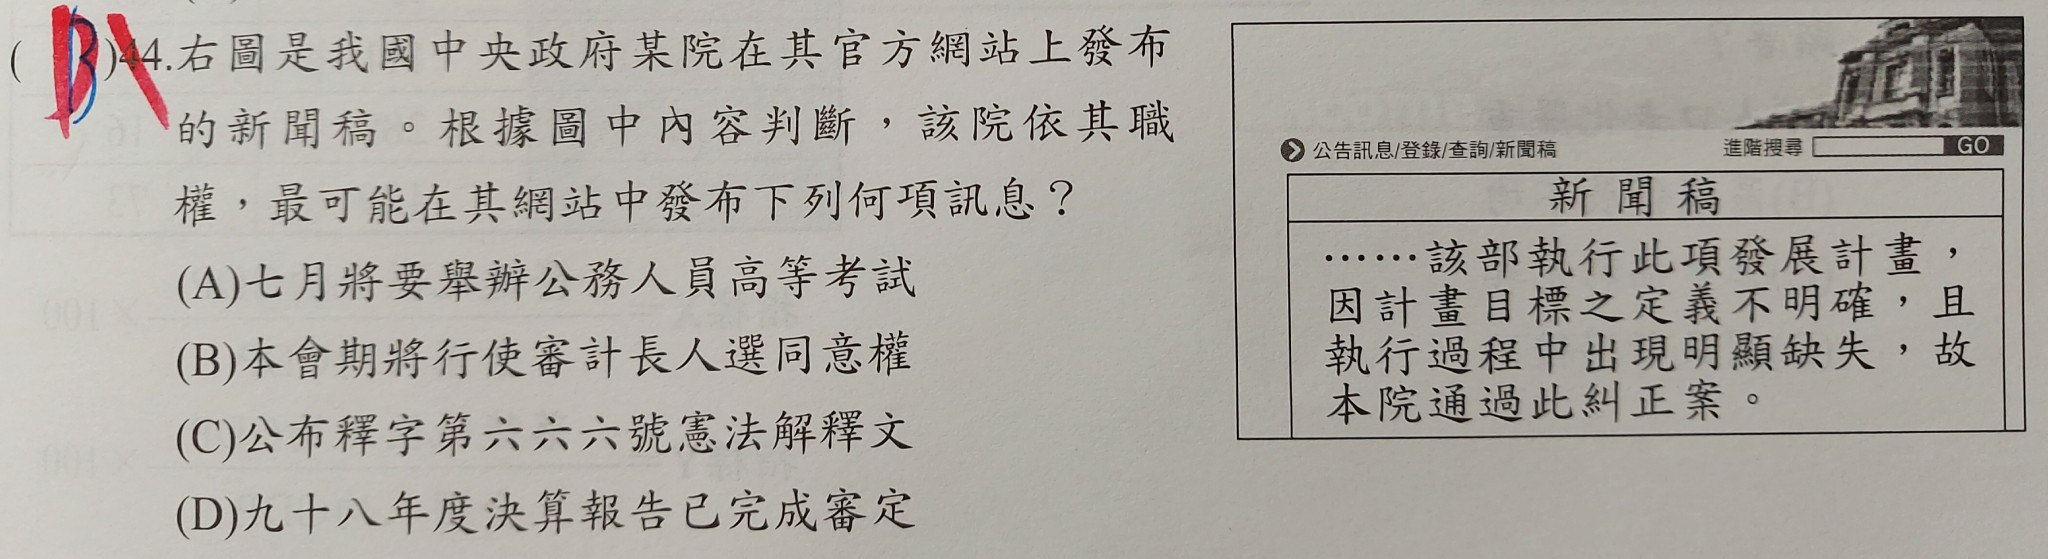 ( B )44.右圖是我國中央政府某院在其官方網站上發布
的新聞稿。根據圖中內容判斷，該院依其職
權，最可能在其網站中發布下列何項訊息？
(A)七月將要舉辦公務人員高等考試
(B)本會期將行使審計長人選同意權
(C)公布釋字第六六六號憲法解釋文
(D)九十八年度決算報告已完成審定
公告訊息/登錄/查詢/新聞稿
進階搜尋 GO
新聞稿
……該部執行此項發展計畫，
因計畫目標之定義不明確，且
執行過程中出現明顯缺失，故
本院通過此糾正案。